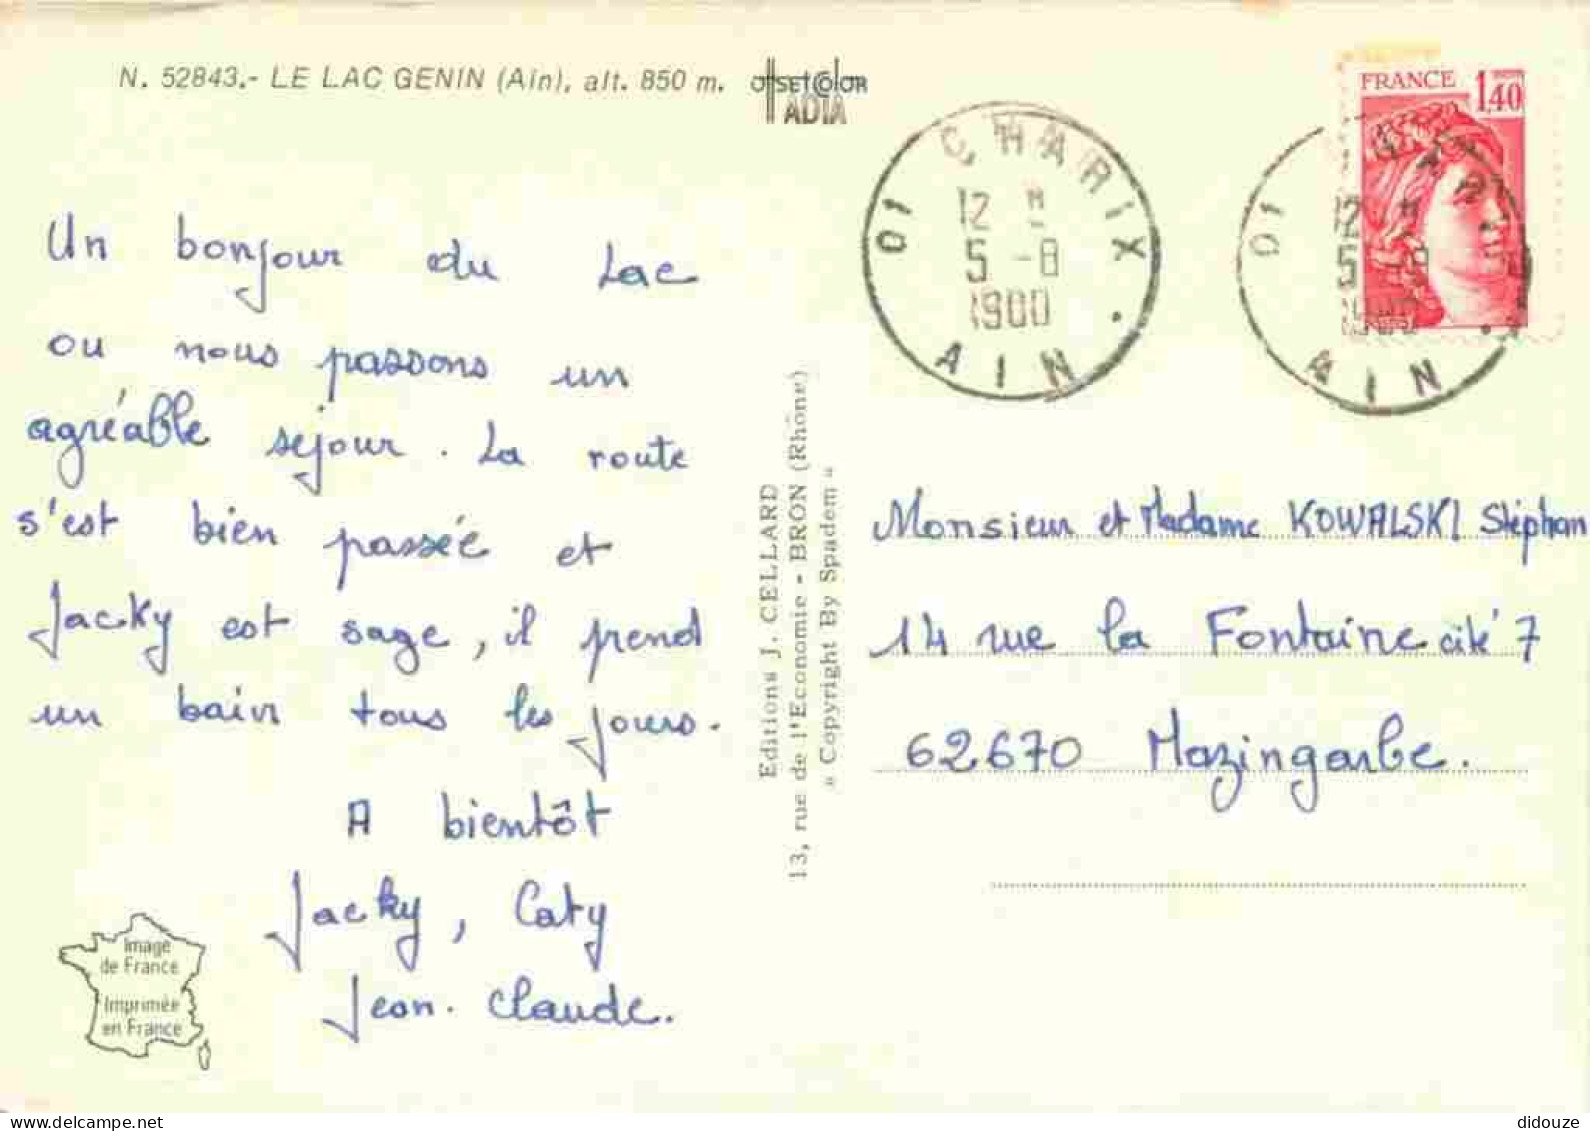 N. 52843.- LE LAC GENIN (Ain), alt. 850 m.
OffsetColor
ADIA
Un bonjour du Lac
ou nous passons un
agréable sejour. La route
s'est bien passée et
Jacky est sage, il prend
un bain tous les jours.
A bientôt
Jacky, Caty
Jean-Claude.
Image
de France
Imprimée
en France
Editions J. CELLARD
13, rue de l'Economie - BRON (Rhône)
" Copyright By Spadem "
01 CHARIX
12 H
5 -8
1980
AIN
FRANCE
1,40
01
12 H
5 -8
AIN
Monsieur et Madame KOWALSKI Stéphan
14 rue la Fontaine cité 7
62670 Mazingarbe.
delcampe.net
didouze